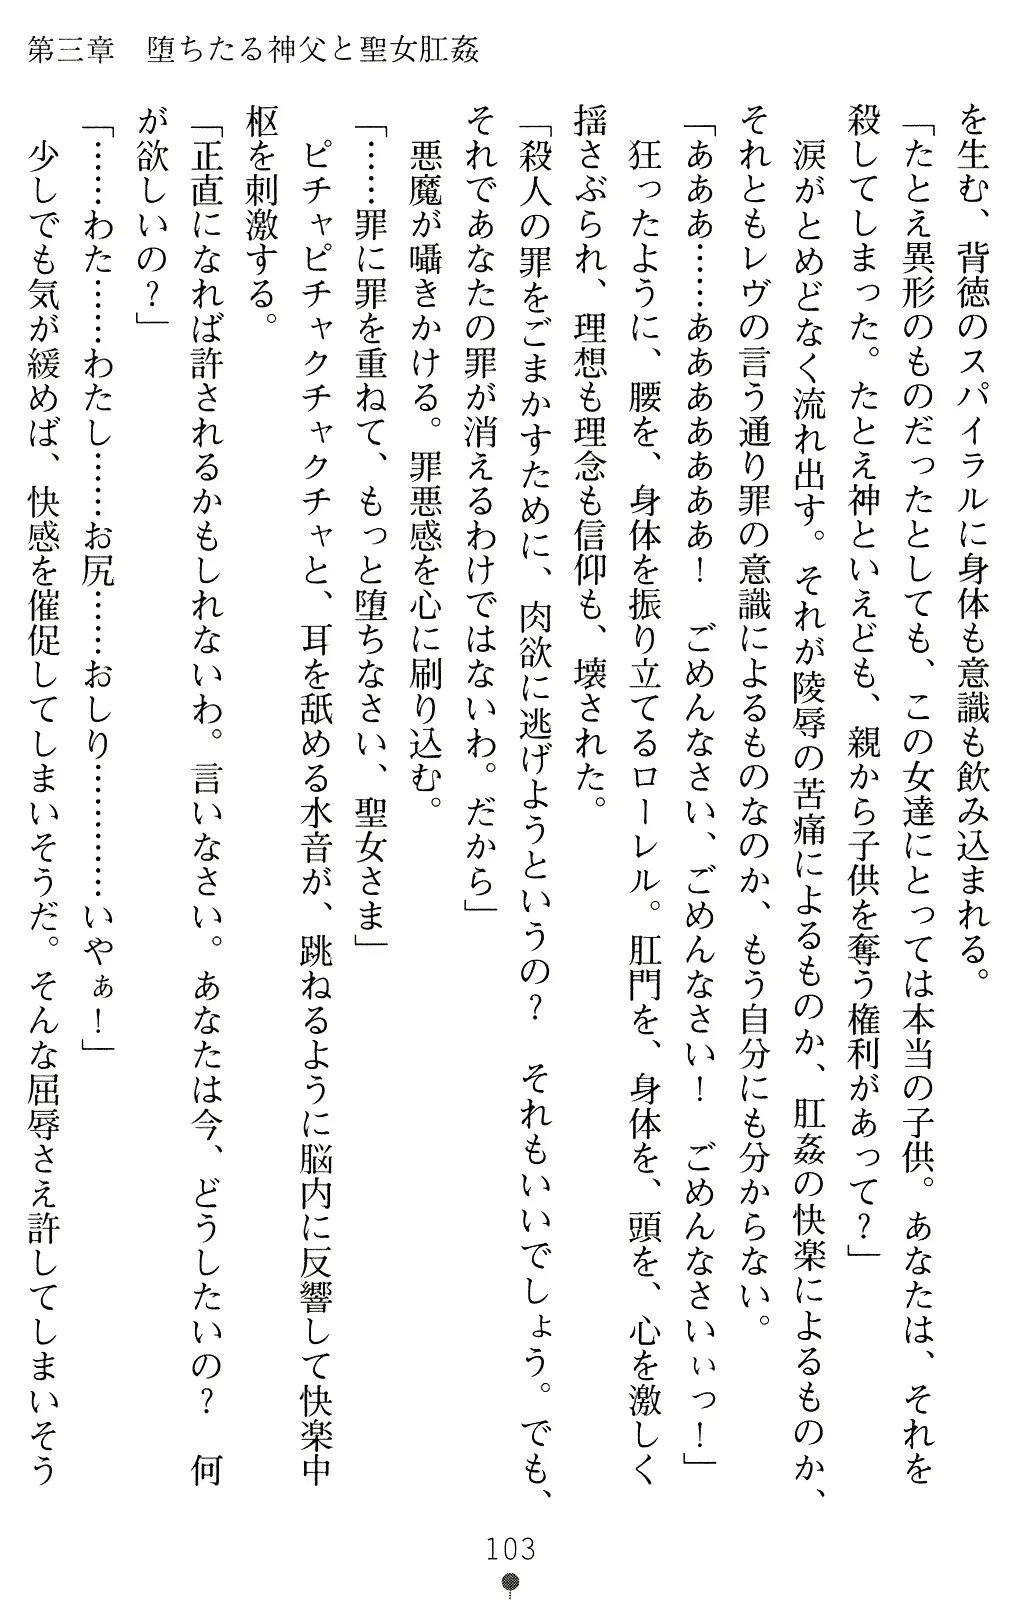 第三章　堕ちたる神父と聖女肛姦
を生む、背徳のスパイラルに身体も意識も飲み込まれる。
「たとえ異形のものだったとしても、この女達にとっては本当の子供。あなたは、それを
殺してしまった。たとえ神といえども、親から子供を奪う権利があって？」
　涙がとめどなく流れ出す。それが陵辱の苦痛によるものか、肛姦の快楽によるものか、
それともレヴの言う通り罪の意識によるものなのか、もう自分にも分からない。
「あああ……ああああああ！　ごめんなさい、ごめんなさい！　ごめんなさいぃっ！」
　狂ったように、腰を、身体を振り立てるローレル。肛門を、身体を、頭を、心を激しく
揺さぶられ、理想も理念も信仰も、壊された。
「殺人の罪をごまかすために、肉欲に逃げようというの？　それもいいでしょう。でも、
それであなたの罪が消えるわけではないわ。だから」
　悪魔が囁きかける。罪悪感を心に刷り込む。
「……罪に罪を重ねて、もっと堕ちなさい、聖女さま」
　ピチャピチャクチャクチャと、耳を舐める水音が、跳ねるように脳内に反響して快楽中
枢を刺激する。
「正直になれば許されるかもしれないわ。言いなさい。あなたは今、どうしたいの？　何
が欲しいの？」
「……わた……わたし……お尻……おしり…………いやぁ！」
　少しでも気が緩めば、快感を催促してしまいそうだ。そんな屈辱さえ許してしまいそう
103